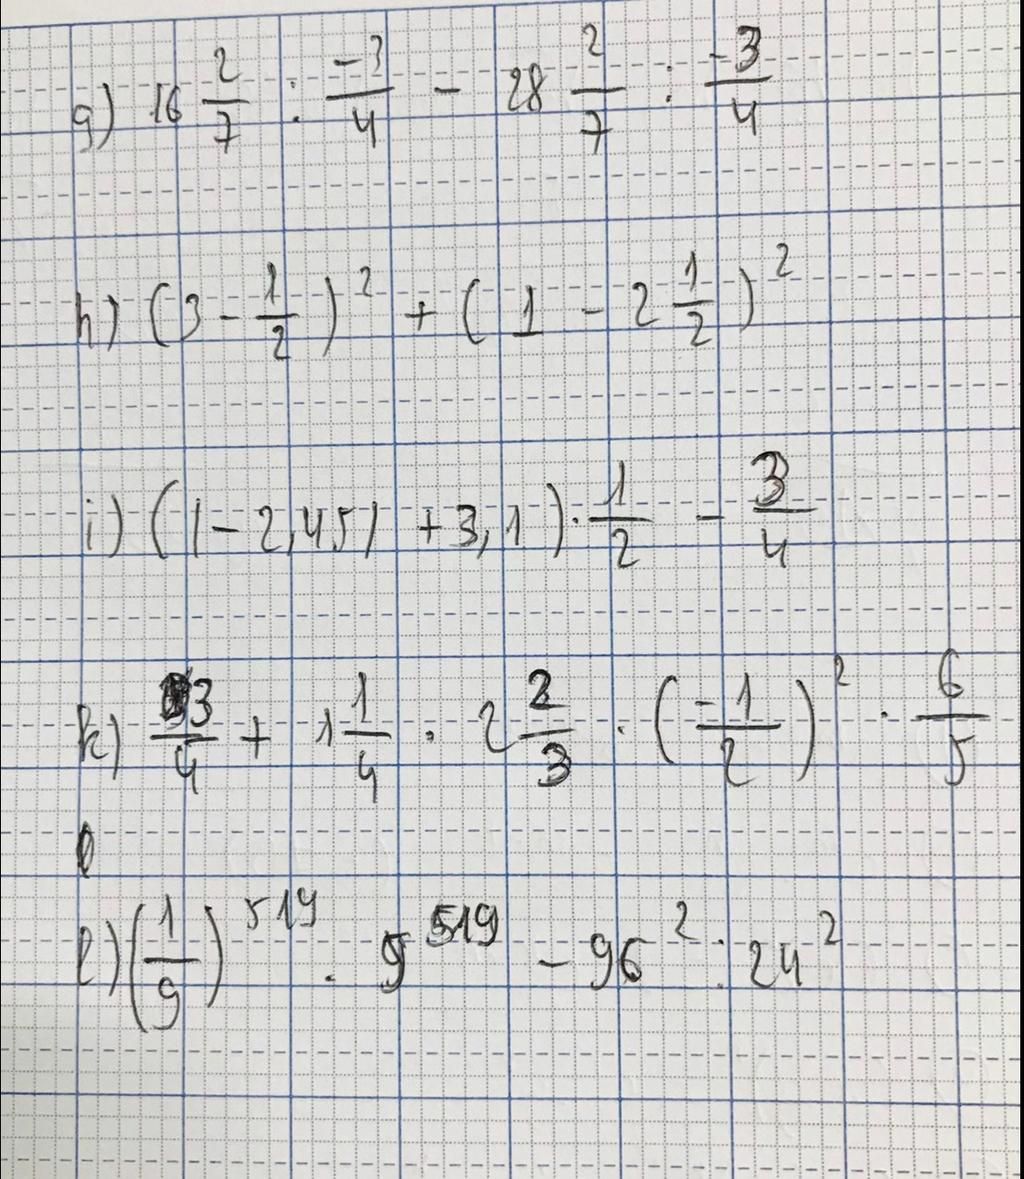 g) 16 2/7 : -3/4 - 28 2/7 : -3/4
h) (3 - 1/2)² + (1 - 2 1/2)²
i) (|-2,45| + 3,1) . 1/2 - 3/4
k) 3/4 + 1 1/4 . 2 2/3 . (-1/2)² . 6/5
l) (1/9)^519 . 9^519 - 96² : 24²